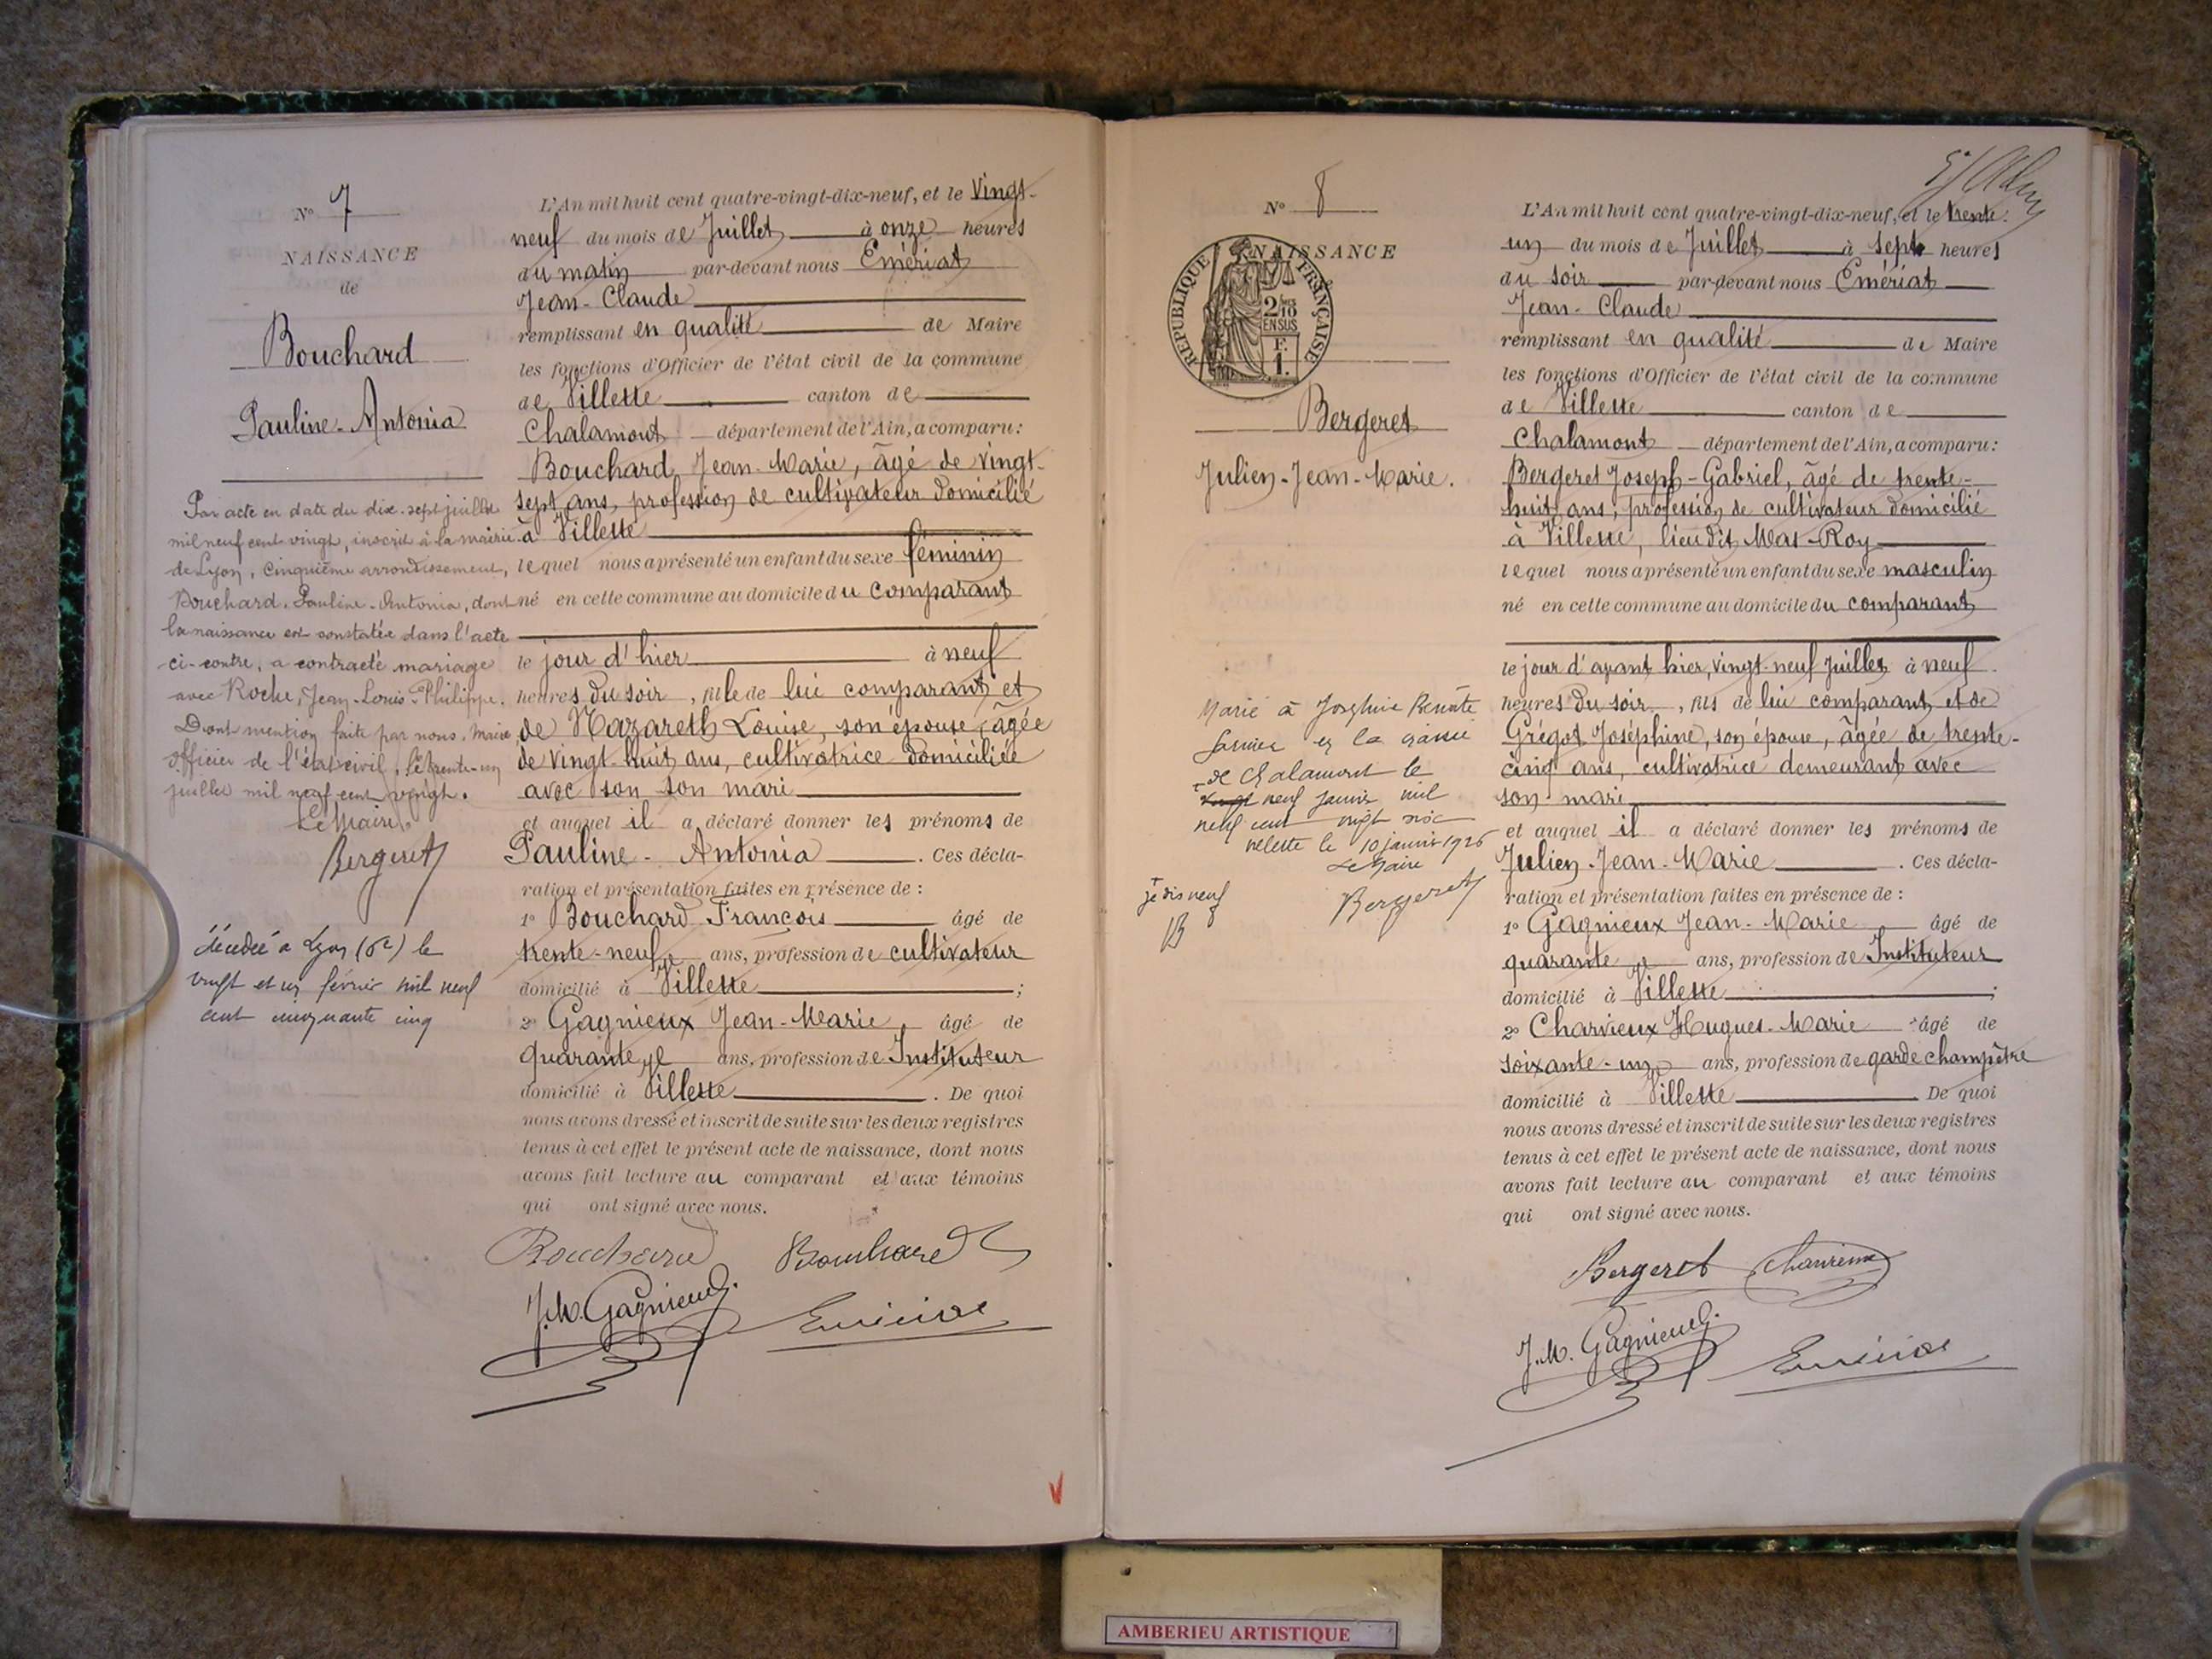 N° 7
NAISSANCE
de
Bouchard
Pauline-Antonia
Par acte en date du dix-sept juillet
mil neuf cent vingt, inscrit à la mairie
de Lyon, Cinquième arrondissement,
Bouchard, Pauline-Antonia, dont
la naissance est constatée dans l'acte
ci-contre, a contracté mariage
avec Roche, Jean-Louis-Philippe.
Dont mention faite par nous, Maire
officier de l'état civil, le trente-un
juillet mil neuf cent vingt.
Le Maire,
Bergeret
décédée à Lyon (5e) le
vingt et un février mil neuf
cent cinquante cinq
L'An mil huit cent quatre-vingt-dix-neuf, et le Vingt-
neuf du mois de Juillet à onze heures
du matin par-devant nous Emériat
Jean-Claude
remplissant en qualité de Maire
les fonctions d'Officier de l'état civil de la commune
de Villette canton de
Chalamont département de l'Ain, a comparu:
Bouchard, Jean-Marie, âgé de vingt-
sept ans, profession de cultivateur domicilié
à Villette
lequel nous a présenté un enfant du sexe féminin
né en cette commune au domicile du comparant
le jour d'hier à neuf
heures du soir, fille de lui comparant et
de Nazareth Louise, son épouse, âgée
de vingt-huit ans, cultivatrice domiciliée
avec son son mari
et auquel il a déclaré donner les prénoms de
Pauline-Antonia. Ces décla-
ration et présentation faites en présence de :
1° Bouchard François âgé de
trente-neuf ans, profession de cultivateur
domicilié à Villette ;
2° Gagnieux Jean-Marie, âgé de
quarante ans, profession de Instituteur
domicilié à Villette. De quoi
nous avons dressé et inscrit de suite sur les deux registres
tenus à cet effet le présent acte de naissance, dont nous
avons fait lecture au comparant et aux témoins
qui ont signé avec nous.
Bouchard Bouchard
J.M. Gagnieux Emériat
N° 8
NAISSANCE
REPUBLIQUE FRANÇAISE
2/10
EN SUS
F.
1.
Bergeret
Julien-Jean-Marie.
Marié à Joséphine Renée
en la mairie
de Chalamont le
vingt neuf janvier mil
neuf cent vingt six
Villette le 10 janvier 1926
Le Maire
Bergeret
je dis neuf
B
L'An mil huit cent quatre-vingt-dix-neuf, et le trente-
un du mois de Juillet à sept heures
du soir par-devant nous Emériat
Jean-Claude
remplissant en qualité de Maire
les fonctions d'Officier de l'état civil de la commune
de Villette canton de
Chalamont département de l'Ain, a comparu:
Bergeret Joseph-Gabriel, âgé de trente-
huit ans; profession de cultivateur domicilié
à Villette, lieu dit Mas-Roy
lequel nous a présenté un enfant du sexe masculin
né en cette commune au domicile du comparant
le jour d'avant hier, vingt-neuf Juillet à neuf
heures du soir, fils de lui comparant et de
Grégot Joséphine, son épouse, âgée de trente-
cinq ans, cultivatrice demeurant avec
son mari
et auquel il a déclaré donner les prénoms de
Julien-Jean-Marie. Ces décla-
ration et présentation faites en présence de :
1° Gagnieux Jean-Marie âgé de
quarante ans, profession de Instituteur
domicilié à Villette ;
2° Charvieux Hugues-Marie âgé de
soixante-un ans, profession de garde champêtre
domicilié à Villette. De quoi
nous avons dressé et inscrit de suite sur les deux registres
tenus à cet effet le présent acte de naissance, dont nous
avons fait lecture au comparant et aux témoins
qui ont signé avec nous.
Bergeret Charvieux
J.M. Gagnieux Emériat
AMBERIEU ARTISTIQUE